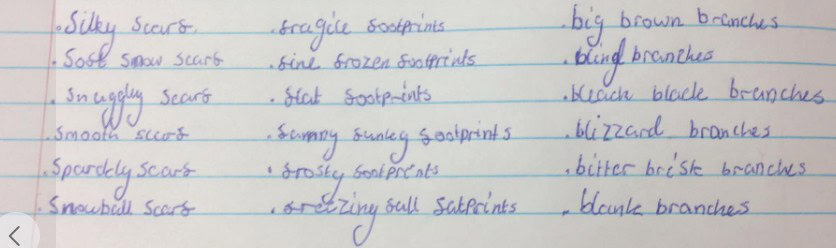 . Silky scarf.
. Soft snow scarf
. Snuggley scarf
. Smooth scarf
. Sparckly scarf
. Snowball scarf
. fragile footprints
. fine frozen footprints
. flat footprints
. funny funkey footprints
. frosty footprints
. freezing full fatprints
. big brown branches
. blind branches
. bleach black branches
. blizzard branches
. bitter brisk branches
. blank branches